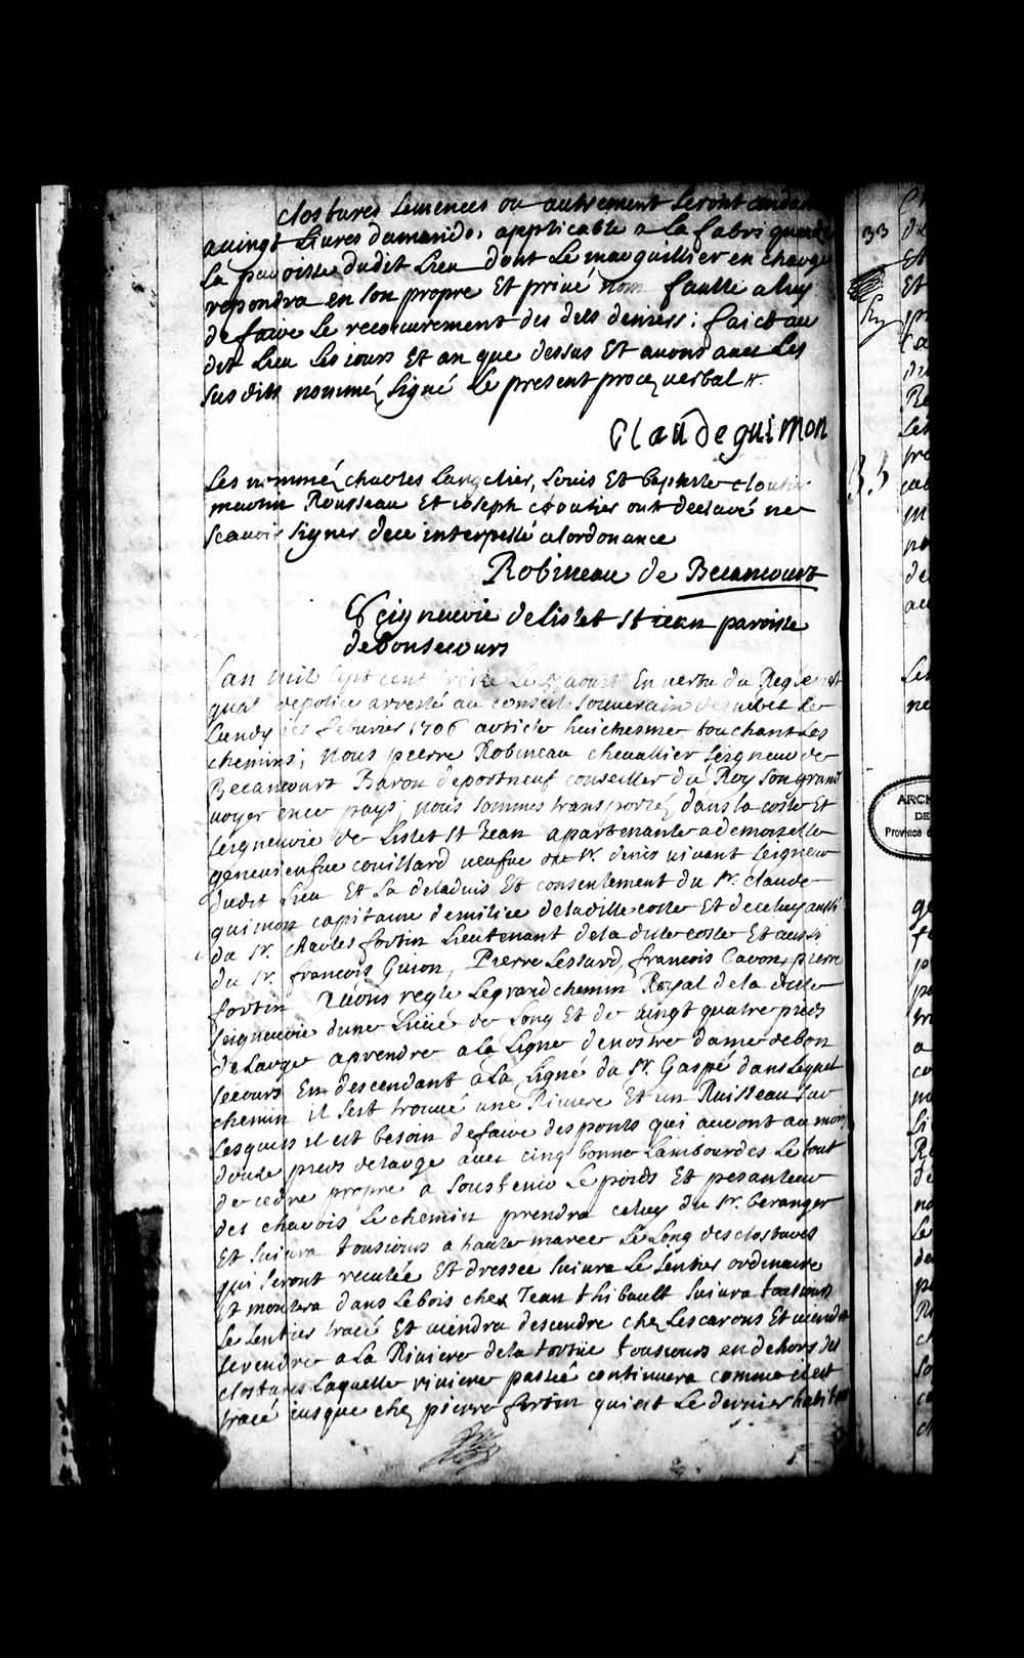 clostures semences ou autrement seront
a vingt Livres damande, applicable a La fabrique de
La paroisse dudit Lieu dont Le marguillier en charge
repondra en son propre Et privé nom faulte a luy
de faire Le recouvrement des dits deniers: faict au
dit Lieu Les iours Et an que dessus Et avons avec Les
susdits nommé signé Le present procez verbal
Claude guimon
Les nommé charles Langelier, Louis Et baptiste cloutier
martin Rousseau Et ioseph cloutier ont declaré ne
scavoir signer de ce interpellé a lordonance
Robineau de Becancourt
Seigneurie de lislet St iean paroisse
de bonsecours
Lan mil sept cent Le aoust En vertu du Reglement
qual de police arresté au conseil souverain de quebec Le
Lundy febvrier 1706 article huictiesme touchant Les
chemins; Nous pierre Robineau chevallier seigneur de
Becancourt Baron de portneuf conseiller du Roy son grand
voyer en ce pays; nous sommes transportéz dans la coste Et
seigneurie de Lislet St Jean apartenante a demoiselle
geneviefve couillard veufve de Sr. denis vivant seigneur
dudit Lieu Et La de ladvis Et consentement du Sr. claude
guimon capitaine de milice de laditte coste Et de celuy aussi
du Sr. charles fortin Lieutenant de la ditte coste Et aussi
du Sr. francois Guion, Pierre Lessard, francois Caron, pierre
fortin Avons reglé Le grand chemin Royal de la ditte
seigneurie dune Lieüe de Long Et de vingt quatre pieds
de Large a prendre a La Ligne de nostre dame de bon
secours En descendant a La Ligne du Sr. Gaspé dans Lequel
chemin il sest trouvé une Riviere Et un Ruisseau sur
Lesquels il est besoin de faire des ponts qui auront au moins
douze pieds de large avec cinq bonne Lambourdes Le tout
de cedre propre a soustenir Le poids Et pesanteur
des charois Le chemin prendra celuy du Sr. beranger
Et suivra tousiours a haute maree Le Long des clostures
qui seront reculée Et dressee suivra Le sentier ordinaire
Et montera dans Le bois chez Jean thibault suivra tousiours
Le sentier tracé Et viendra descendre chez Les carons Et viendra
se rendre a La Riviere de la tortüe tousiours en dehors des
clostures Laquelle riviere passée continuera comme il est
tracé iusque chez pierre fortin qui est Le dernier habitant
33
ARCH
DE
Province